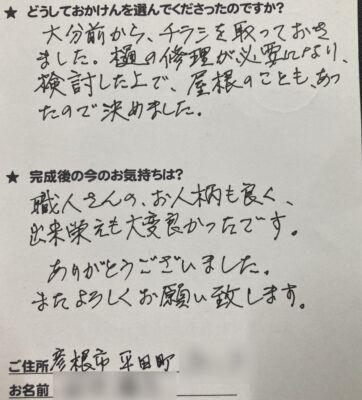 ★ どうしておかけんを選んでくださったのですか?
大分前から、チラシを取っておき
ました。樋の修理が必要になり、
検討した上で、屋根のことも、あっ
たので決めました。
★ 完成後の今のお気持ちは?
職人さんの、お人柄も良く、
出来栄えも大変良かったです。
ありがとうございました。
またよろしくお願い致します。
ご住所 彦根市 平田町
お名前